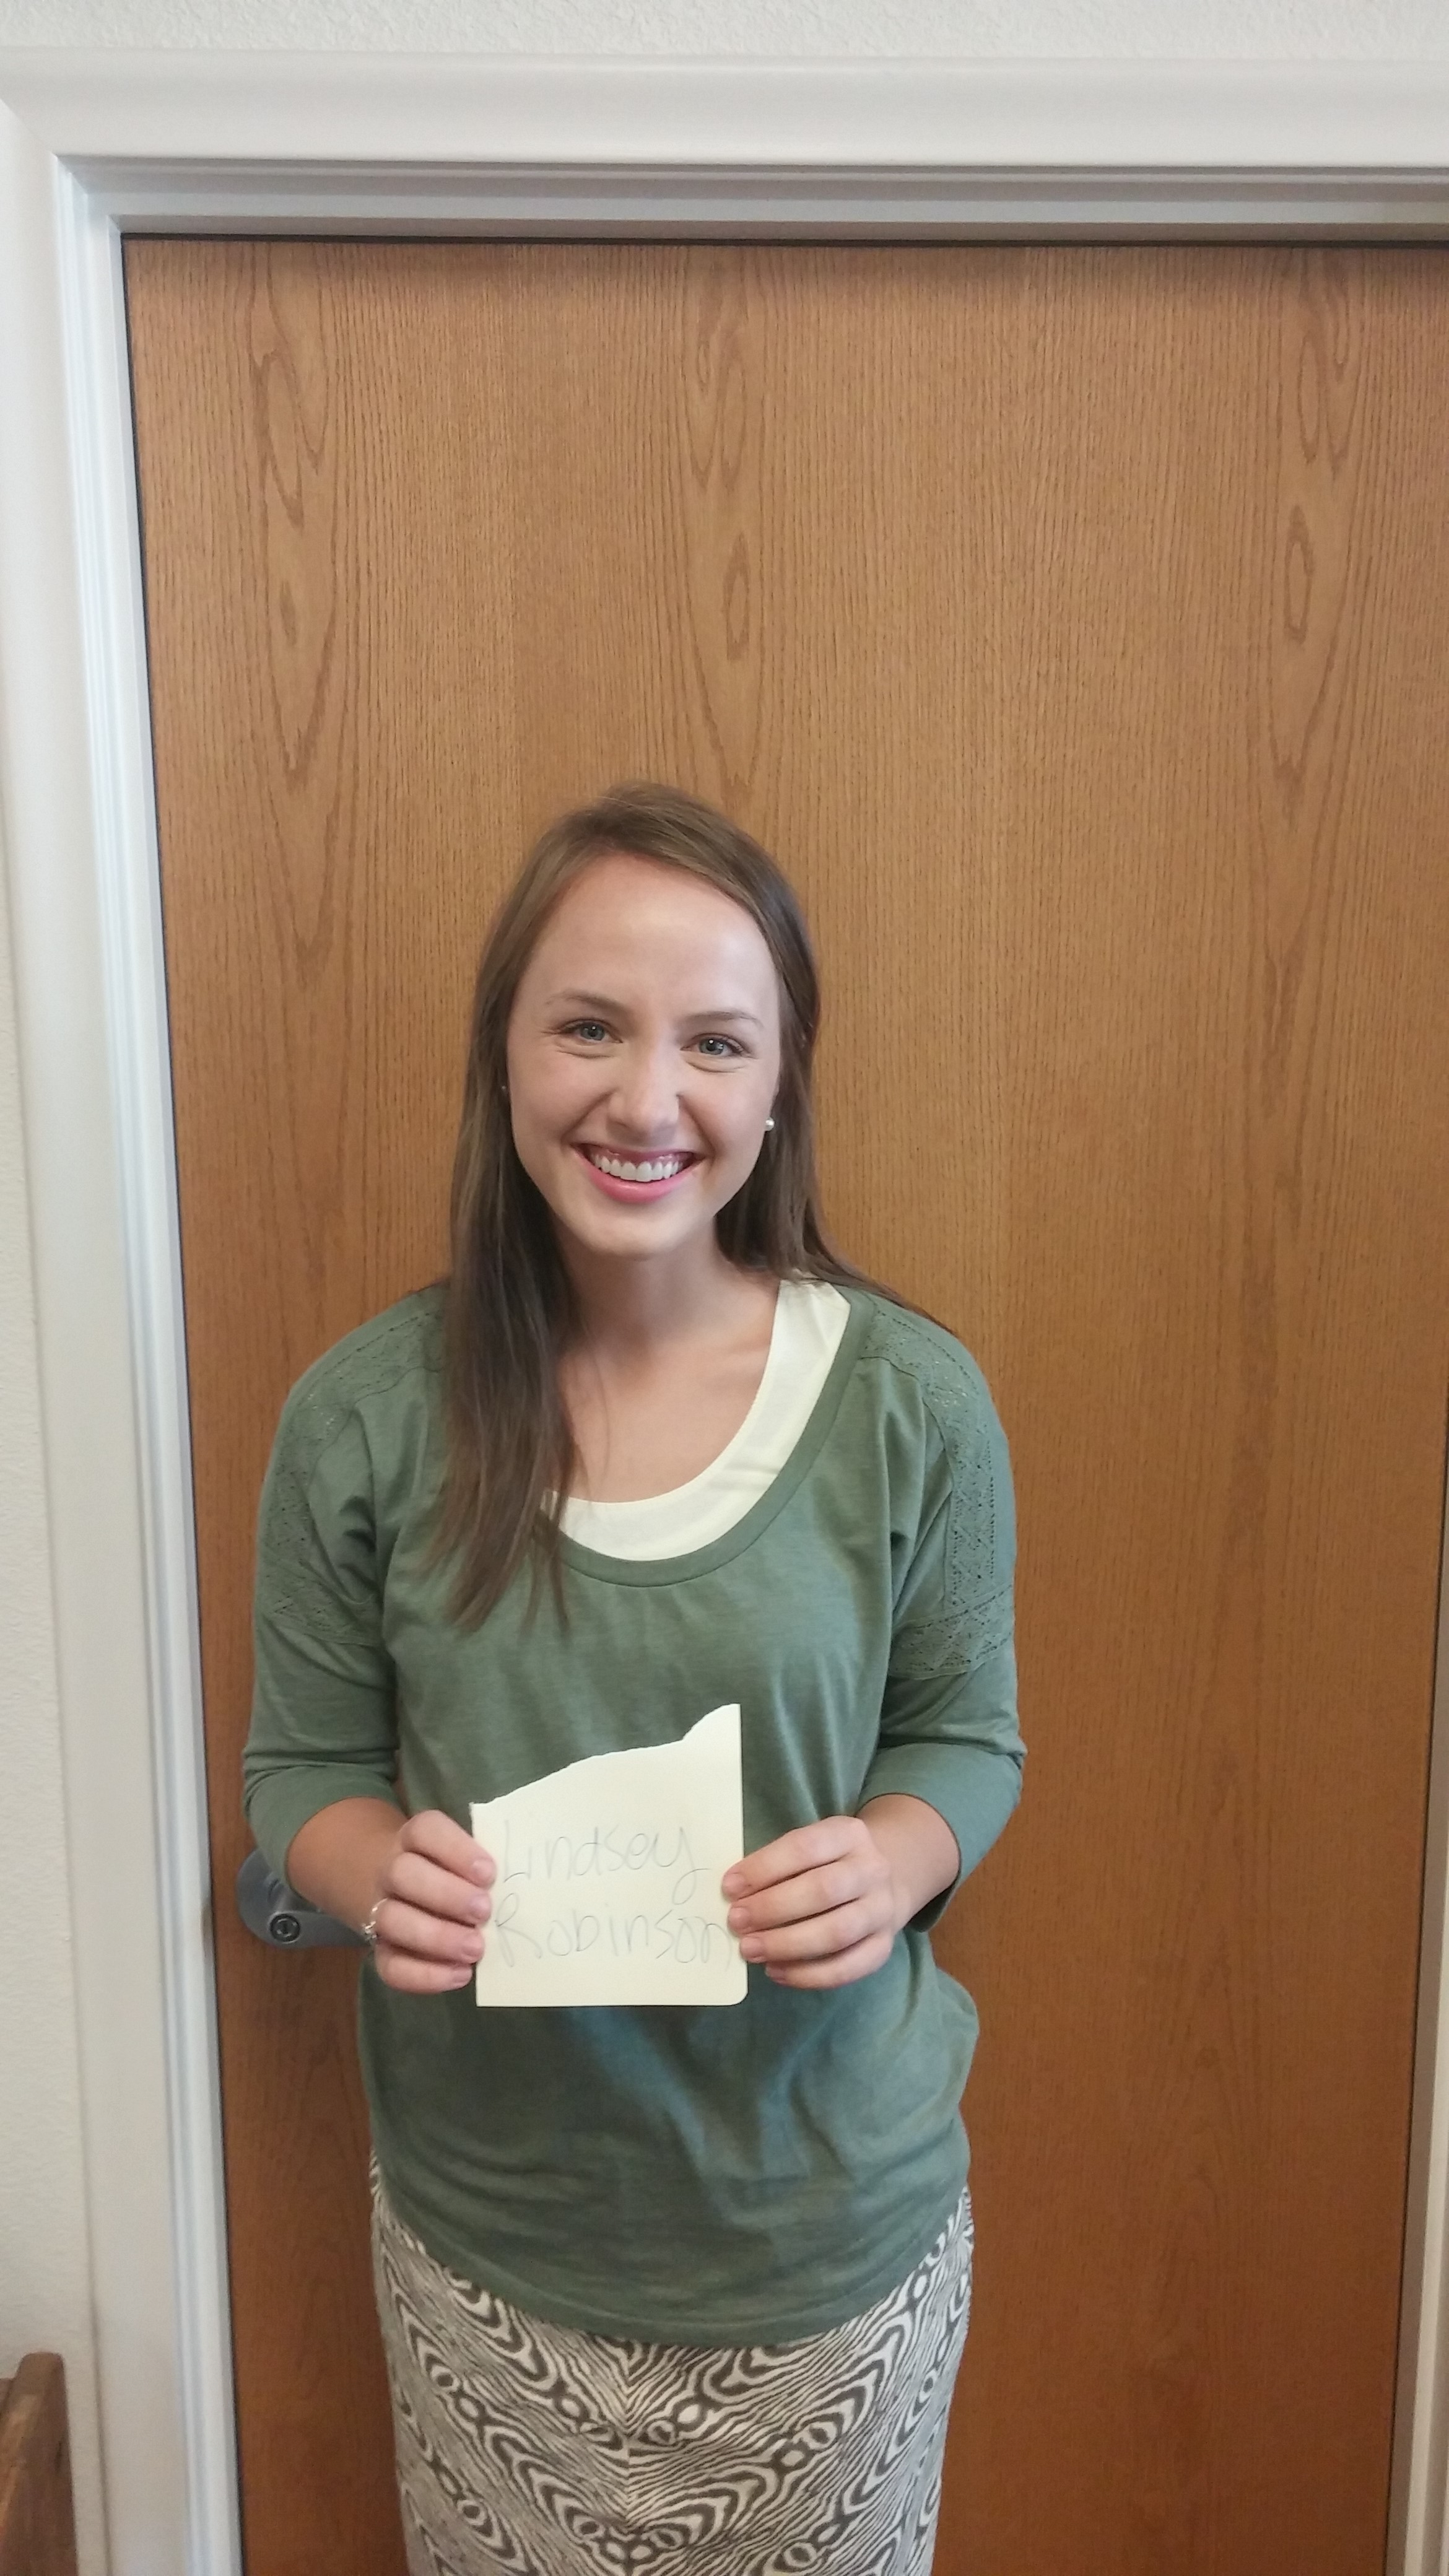 Lindsey
Robinson